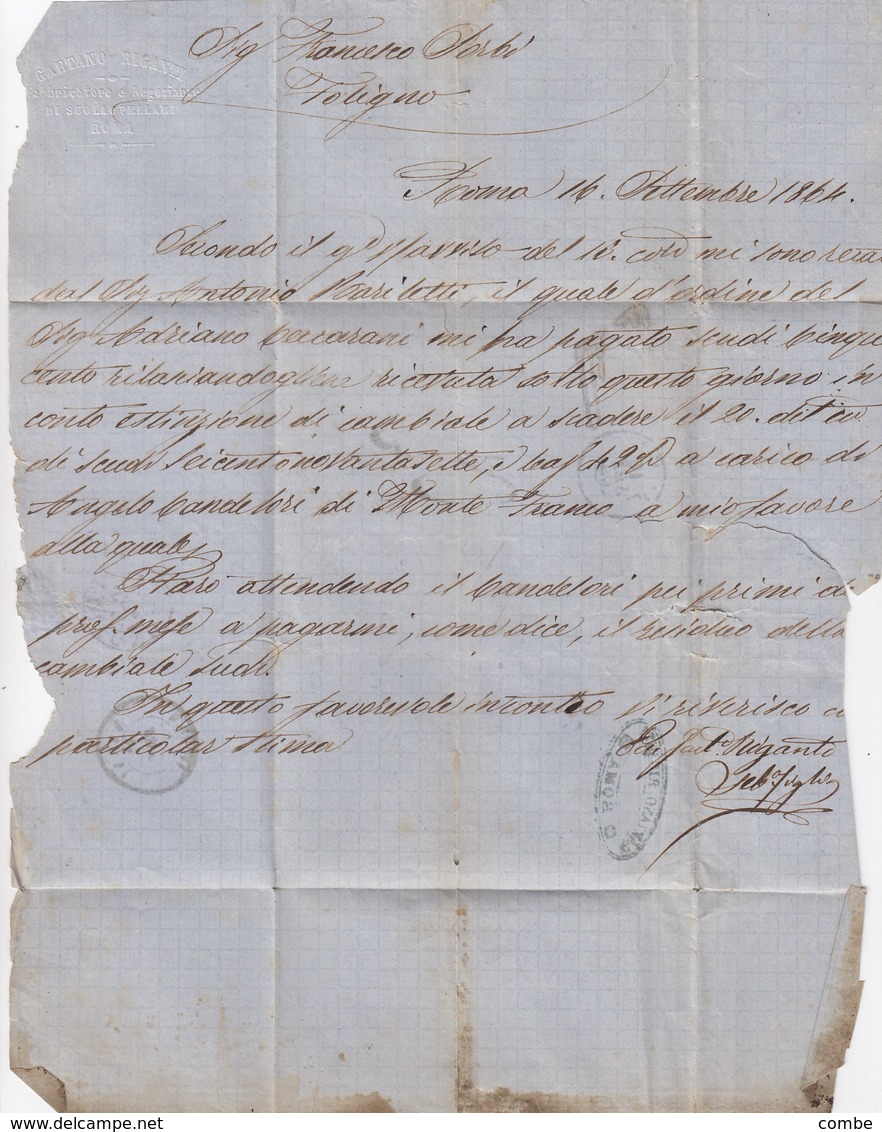 GAETANO RIGANTI
Fabbricatore e Negoziante
DI SUOLI E PELLAMI
ROMA
Sig Francesco Sorbi
Foligno
Roma 16. Settembre 1864.
Secondo il g.d° avviso del 12. cor.te mi sono recato
dal Sig Antonio Mariletti, il quale d'ordine del
Sig Adriano Ceccarani mi ha pagato scudi Cinque
cento rilasciandogliene ricevuta sotto questo giorno in
conto estinzione di cambiale a scadere il 20. dit
di scudi Seicentonovantasette, e baj 42½ a carico di
Angelo Candelori di Monte Franco a mio favore
alla quale
Starò attendendo il Candelori pei primi d
pros. mese a pagarmi, come dice, il residuo della
cambiale sud.
In questo favorevole incontro Vi riverisco co
particolar stima
Riganti
GAETANO RIGANTI
ROMA
combe